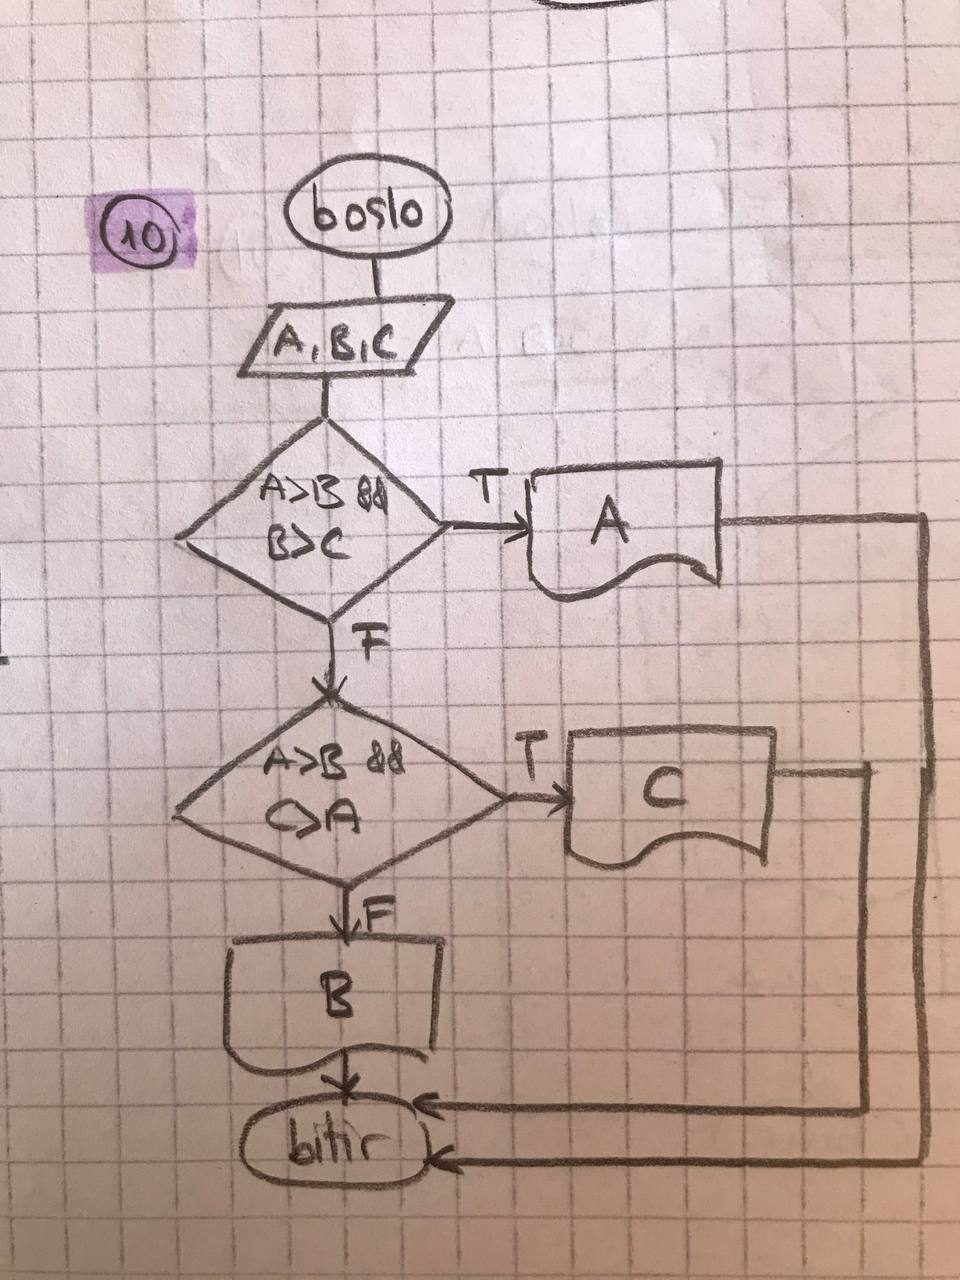 10
başla
A, B, C
A>B &&
B>C
T
A
F
A>B &&
C>A
T
C
F
B
bitir